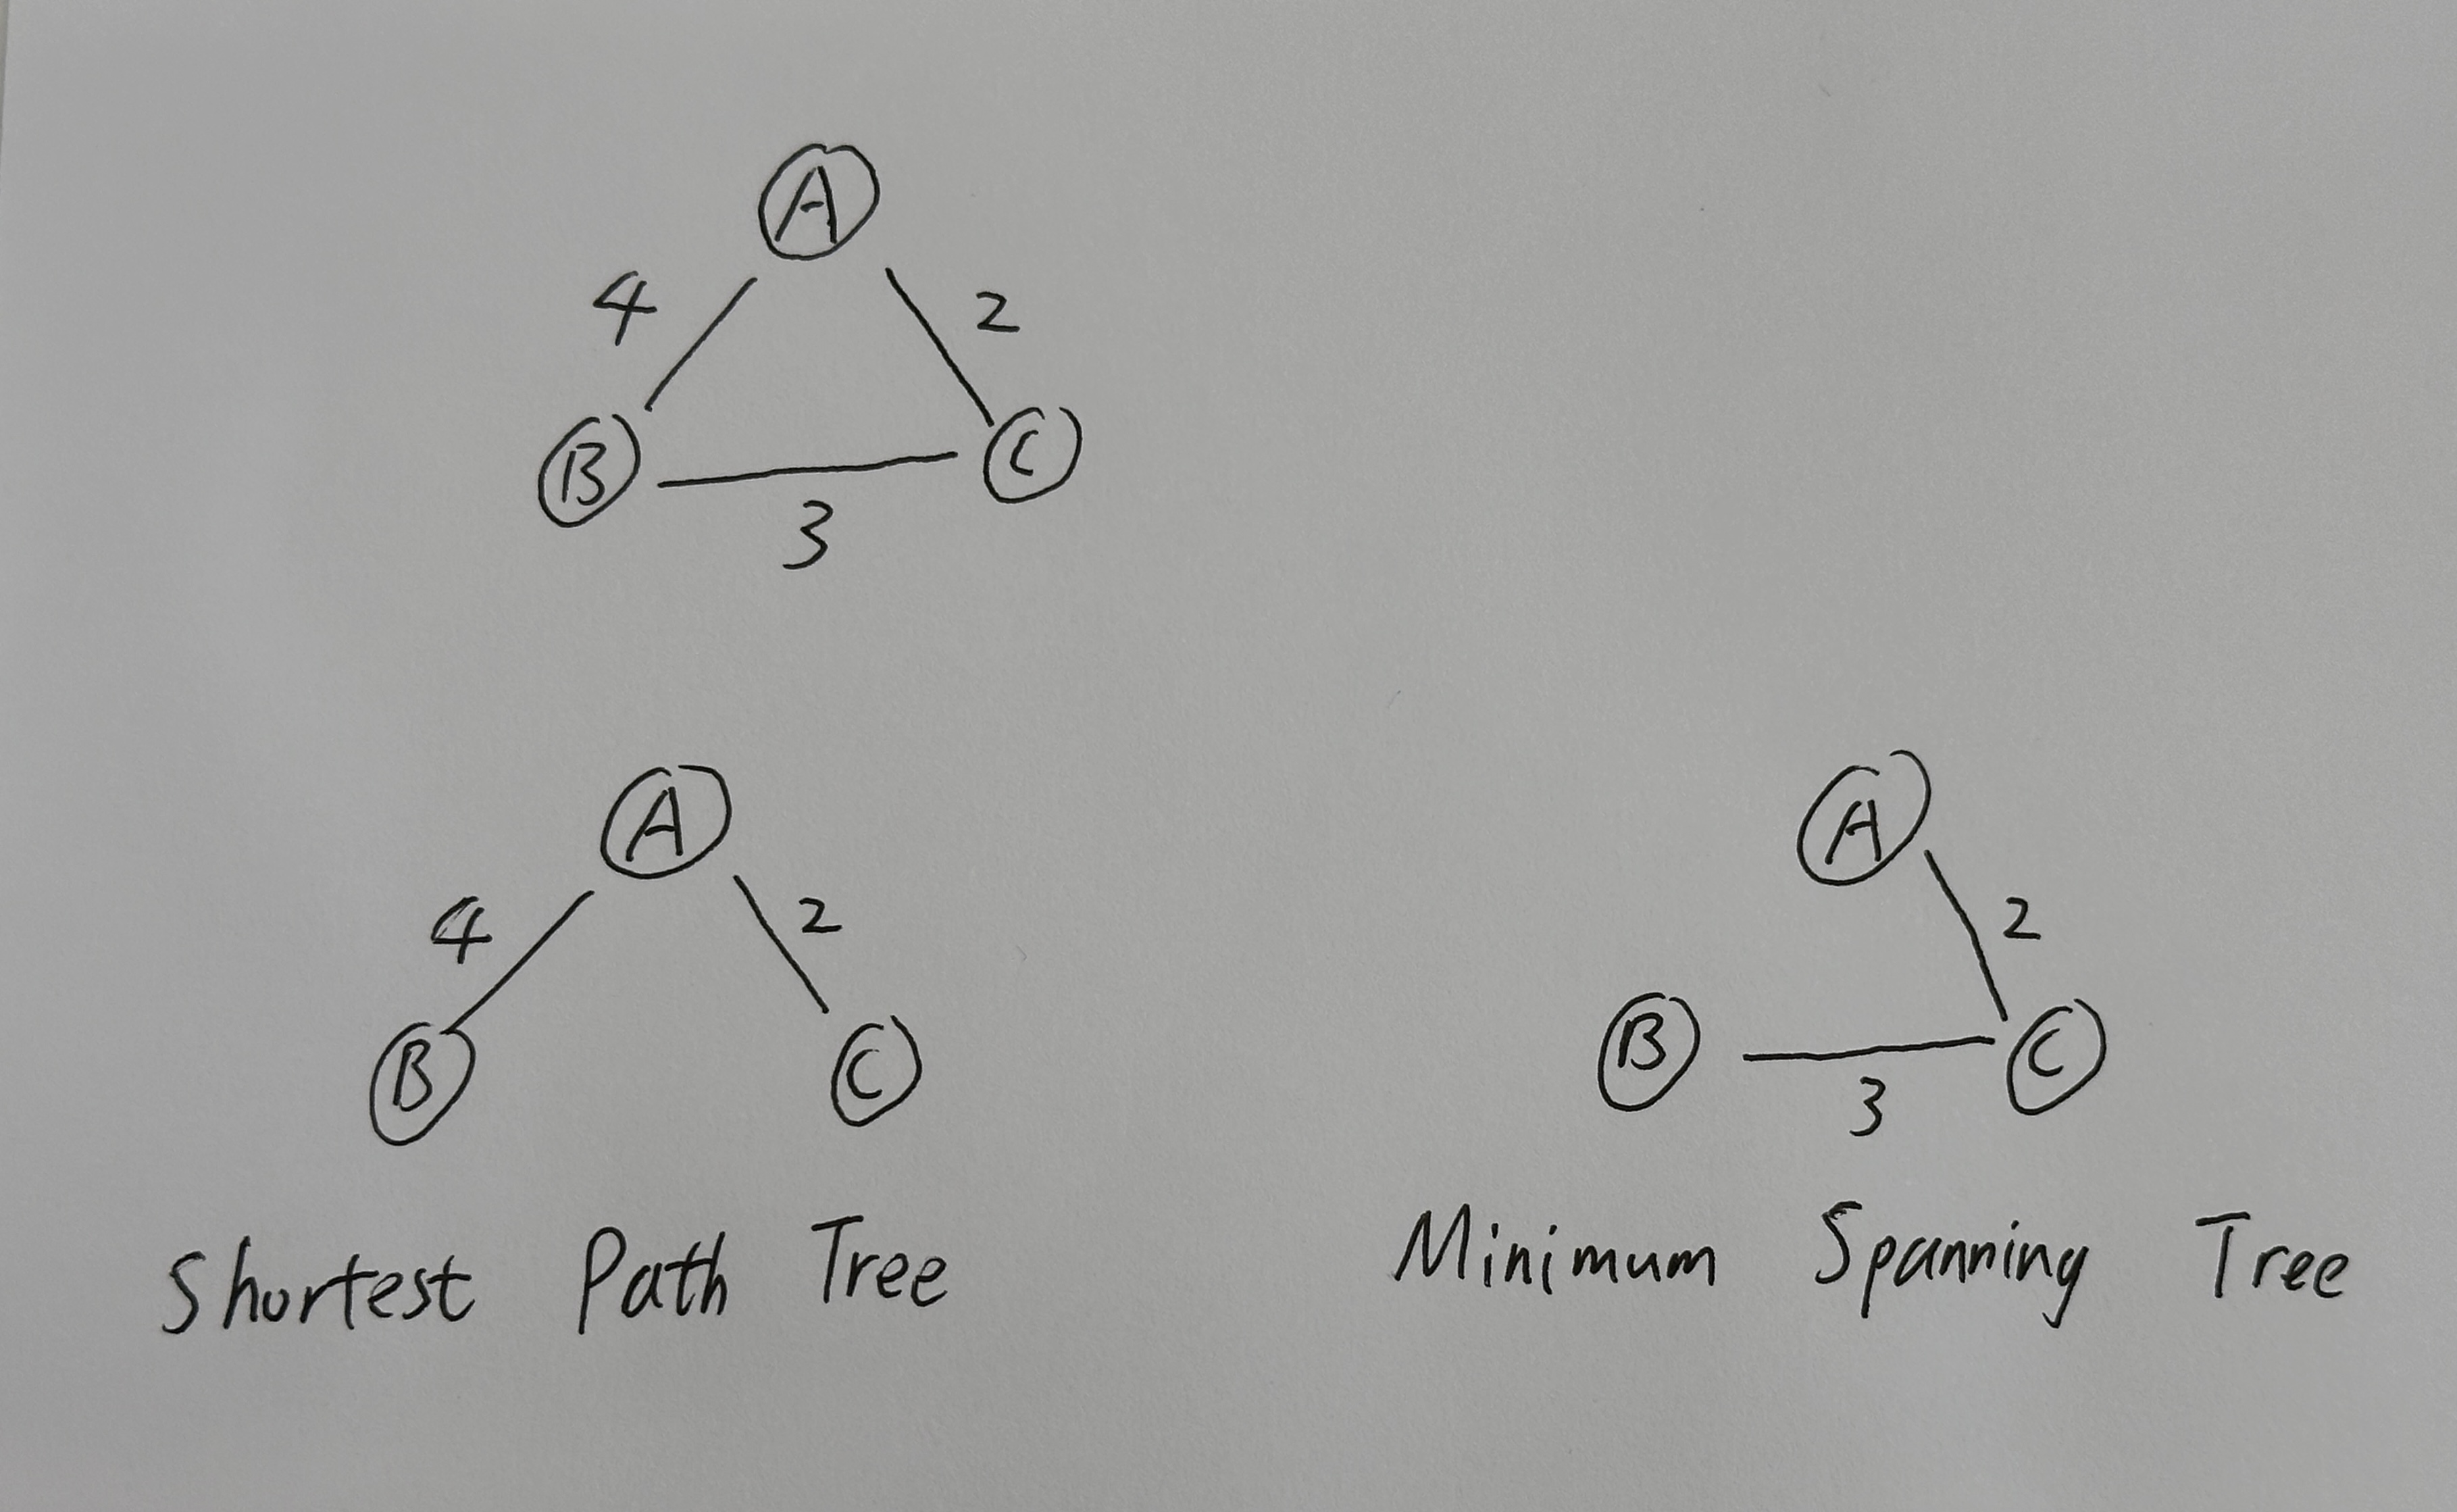 A
4 2
B C
3
A A
4 2 2
B C B C
3
Shortest Path Tree Minimum Spanning Tree